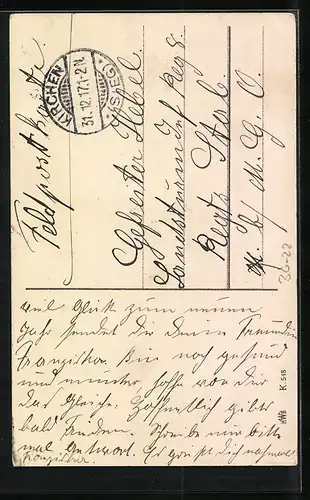 Feldpostkarte
KIRCHEN
31.12.17.1-2N
(SIEG)
Gefreiter Hebel
Landsturm Inf Reg 8.
Regts Stab
M. G. O.
36-22
viel Glück zum neuen
Jahr sendet dir deine Freundin
Franziska. Bin noch gesund
und munter, hoffe von dir
das Gleiche. Hoffentlich gibts
bald Frieden. Schreibe mir bitte
mal Antwort. Es grüßt Dich nochmals
Franziska.
HWB K. 518